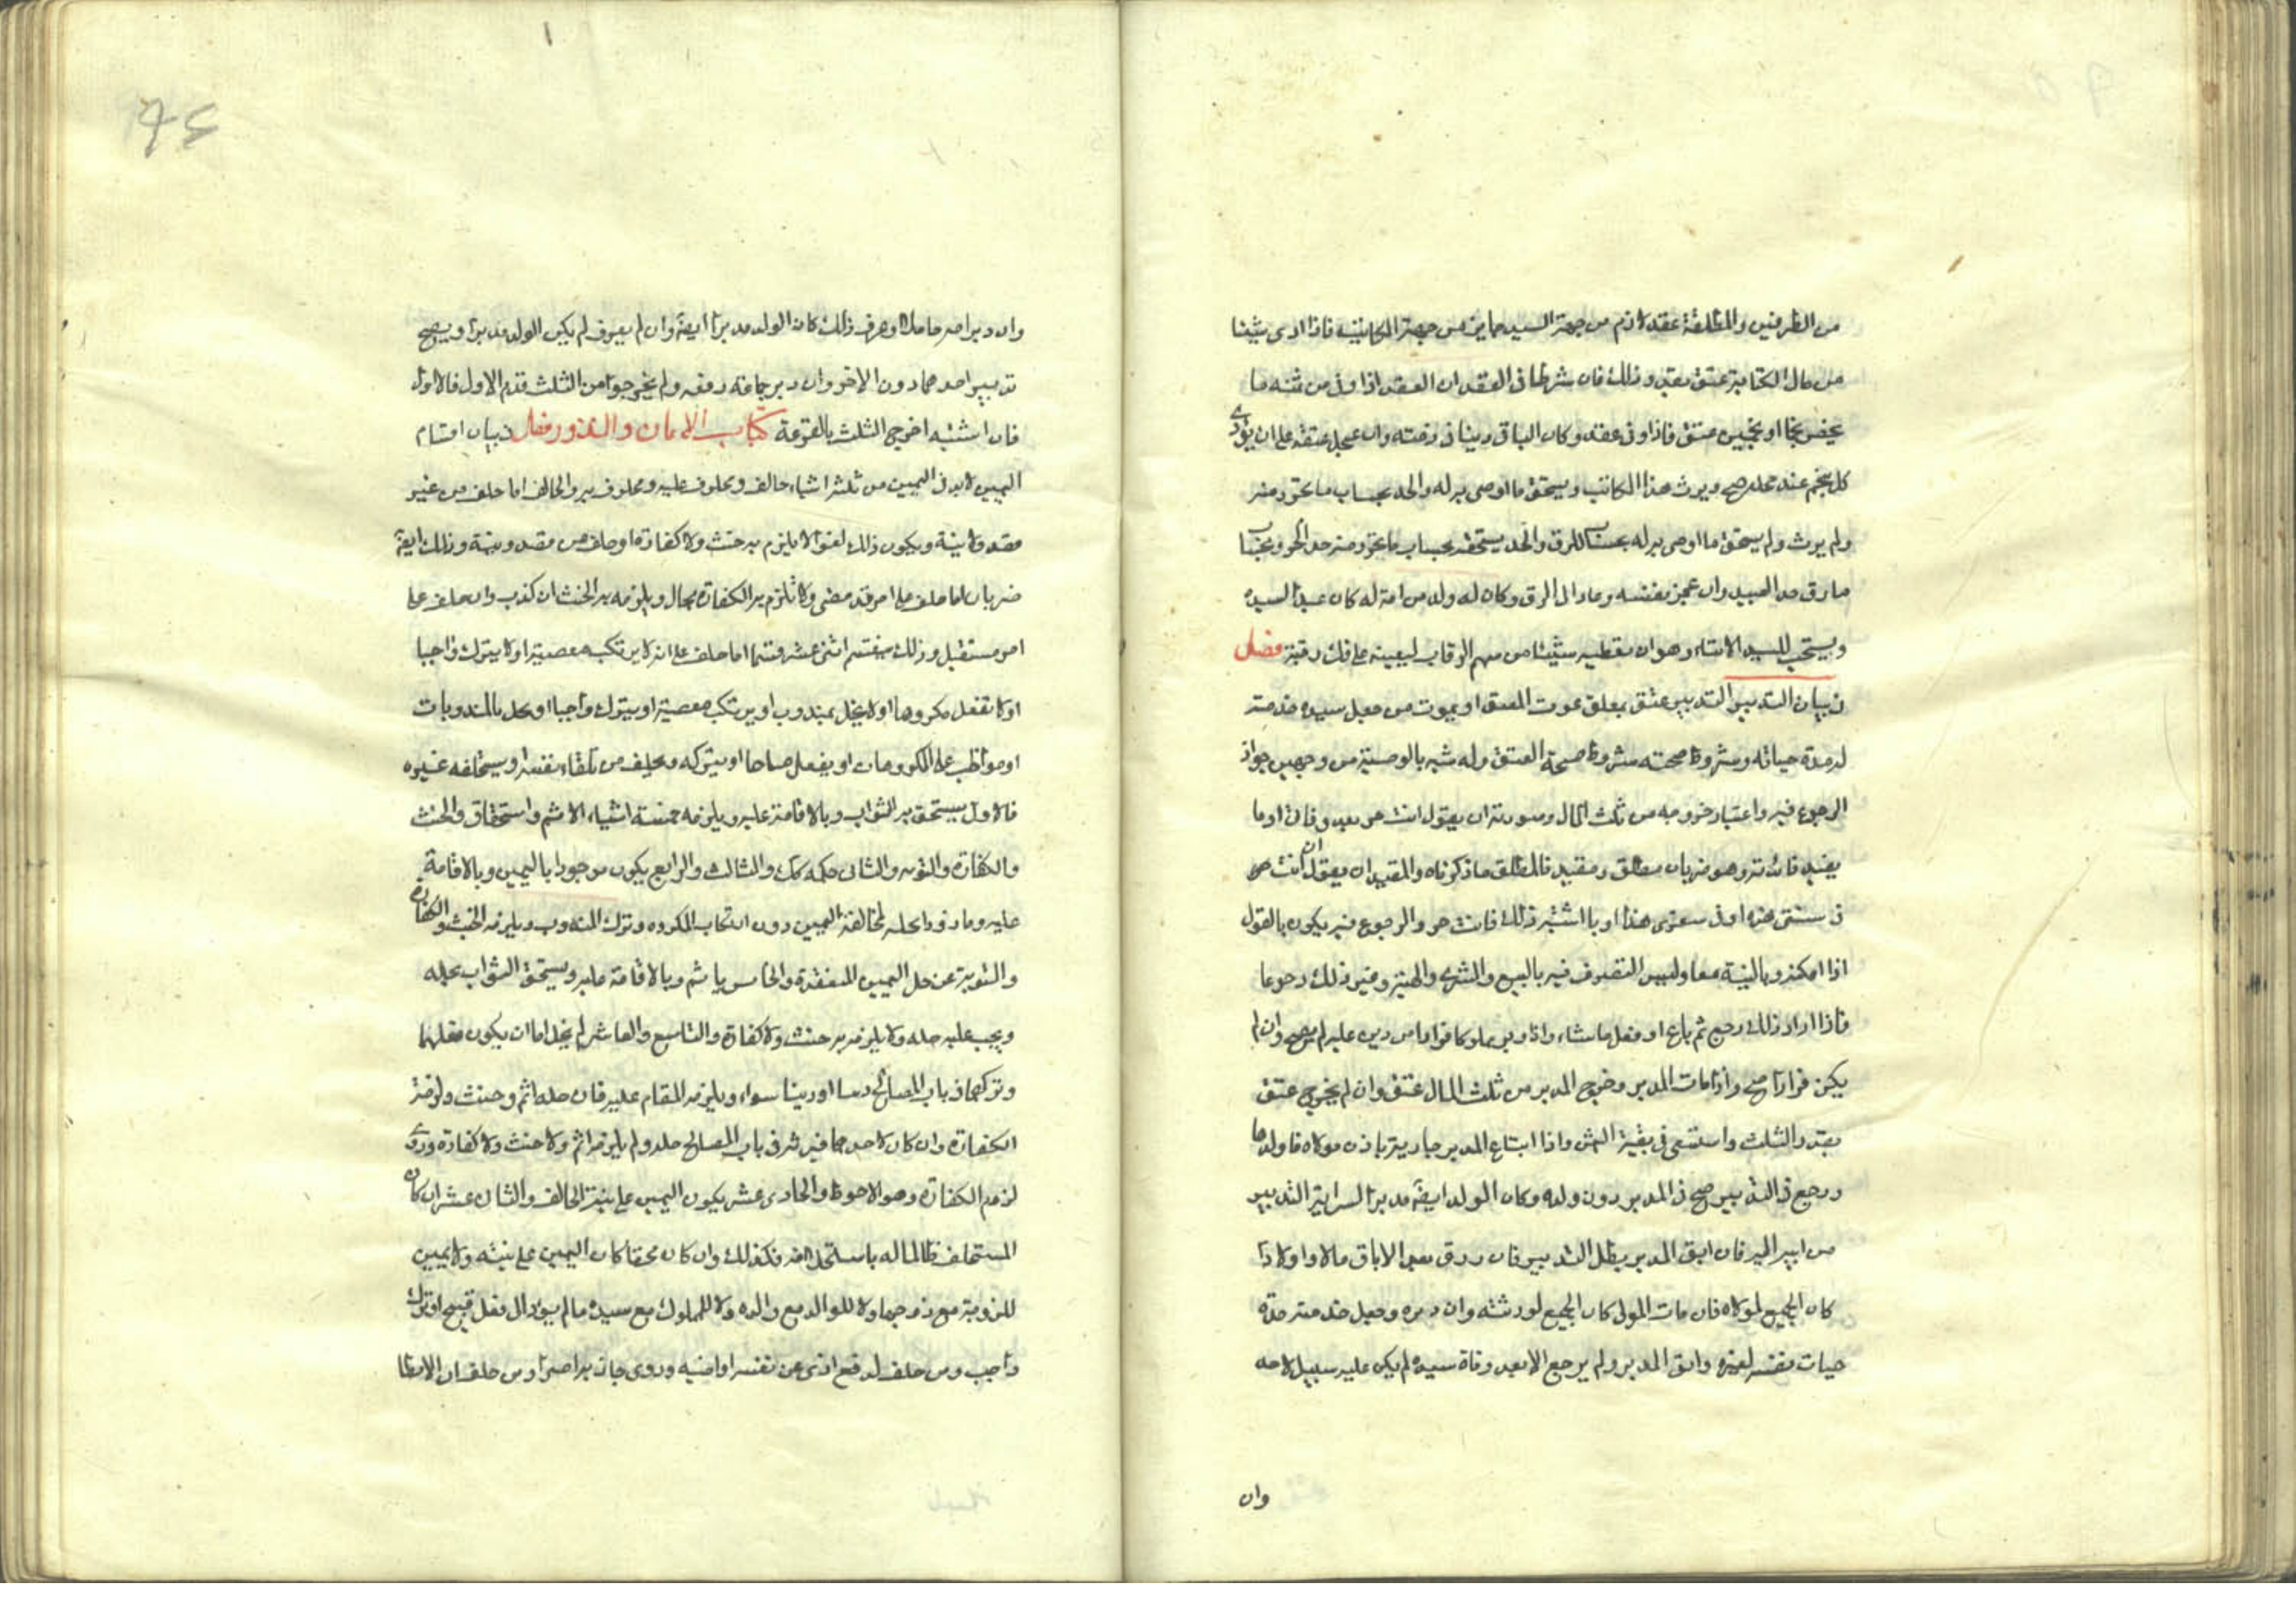 من الطرفين والمطلقة عقد لازم من جهة السيد جايز من جهة المكاتبة فاذا ادى شيئا
من مال الكتابة عتق بقدر ذلك فان شرطا فى العقد ان العقد اذا وفى من ثمنه ما
يخص نجما او نجمين عتق فاذا وفى عقد وكان الباقى دينا فى ذمته وان عجل عتقه على ان يؤدى
كل نجم عند محله صح ويرث هذا المكاتب ويستحق ما اوصى به له والحد بحساب ما تحرر منه
ولم يورث ولم يستحق ما اوصى به له بحساب الرق والحد يستحقه بحساب ما تحرر منه حد الحر وبحساب
ما رق حد العبيد وان عجز بنفسه وعاد الى الرق وكان له ولد من امة له كان عبدا لسيده
ويستحب للسيد الايتاء وهو ان يعطيه شيئا من سهم الرقاب ليعينه على فك رقبته فصل
فى بيان التدبير التدبير عتق يعلق بموت المعتق او بموت من جعل سيده خدمته
له مدة حياته وشروط صحته شروط صحة العتق وله شبه بالوصية من وجهين جواز
الرجوع فيه واعتبار خروجه من ثلث المال وصورته ان يقول انت حر بعد وفاتى او ما
يفيد فائدته وهو ضربان مطلق ومقيد فالمطلق ما ذكرناه والمقيد ان يقول ان انت حر
فى سنتى هذه او فى سفرى هذا او ما اشبه ذلك فانت حر والرجوع فيه يكون بالقول
اذا امكنه وبالنية معا وليس التصرف فيه بالبيع والشرى والهبة وغير ذلك رجوعا
فاذا اراد ذلك رجع ثم باع او فعل ما شاء واذا دبر مملوكا فرارا من دين عليه لم يصح وان لم
يكن فرارا صح واذا مات المدبر وخرج المدبر من ثلث المال عتق وان لم يخرج عتق
بقدر الثلث واستسعى فى بقية الثمن واذا ابتاع المدبر جارية باذن مولاه فاولدها
ورجع فى التدبير صح فى المدبر دون ولده وكان الولد ايضا مدبرا لسراية التدبير
من ابيه اليه فان ابق المدبر بطل التدبير فان رزق بعد الاباق مالا واولادا
كان الجميع لمولاه فان مات المولى كان الجميع لورثته وان دبره وجعل خدمته مدة
حيات نفسه لغيره وابق المدبر ولم يرجع الا بعد وفاة سيده لم يكن عليه سبيل لاحد
وان
وان دبر امه حاملا وعرف ذلك كان الولد مدبرا ايضا وان لم يعرف لم يكن الولد مدبرا ويصح
تدبير احدهما دون الاخر وان دبر جماعة دفعه ولم يخرجوا من الثلث قدم الاول فالاول
فان اشتبه اخرج الثلث بالقرعة كتاب الايمان والنذور فصل فى بيان اقسام
اليمين لابد فى اليمين من ثلثة اشياء حالف ومحلوف عليه ومحلوف به والحالف اما حلف من غير
قصد ونية ويكون ذلك لغوا لا يلزم به حنث ولا كفارة او حلف من قصد ونية وذلك ايضا
ضربان اما حلف على امر قد مضى ولا تلزم به الكفارة بحال ويلزمه به الحنث ان كذب وان حلف على
امر مستقبل وذلك ينقسم اثنى عشر قسما اما حلف على انه لا يرتكب معصية او لا يترك واجبا
او لا يفعل مكروها او لا يخل بمندوب او يرتكب معصية او يترك واجبا او يخل بالمندوبات
او مواظب على المكروهات او يفعل مباحا او يتركه ويحلف من تلقاء نفسه او يستحلفه غيره
فالاول يستحق به الثواب وبالاقامة عليه ويلزمه خمسة اشياء الاثم واستحقاق والحنث
والكفارة والتوبه والثانى حكمه كذلك والثالث والرابع يكون موجودا باليمين وبالاقامة
عليه وماذورا بحله لمخالفة اليمين دون ارتكاب المكروه وترك المندوب ويلزمه الحنث والكفارة
والتوبة عن حل اليمين المنعقدة والخامس ياثم وبالاقامة عليه ويستحق الثواب بحله
ويجب عليه حله ولا يلزمه به حنث ولا كفارة والتاسع والعاشر لم يخل اما ان يكون فعلهما
وتركهما فى باب المصالح دنيا او دينا سواء ويلزمه المقام عليه فان حله اثم وحنث ولزمته
الكفارة وان كان لاحدهما مزية فى باب المصالح حله ولم يلزمه اثم ولا حنث ولا كفارة وروى
لزوم الكفارة وهو الاحوط والحادى عشر يكون اليمين على نية الحالف والثانى عشر ان كان
المستحلف ظالما له باستحلافه فكذلك وان كان محقا كان اليمين على نيته ولا يمين
للزوجة مع زوجها ولا للوالد مع والده ولا للمملوك مع سيده ما لم يؤد الى فعل قبيح او ترك
واجب ومن حلف لدفع اذى عن نفسه او اخيه وروى جاز به اصرا ومن حلف ان لا يطا